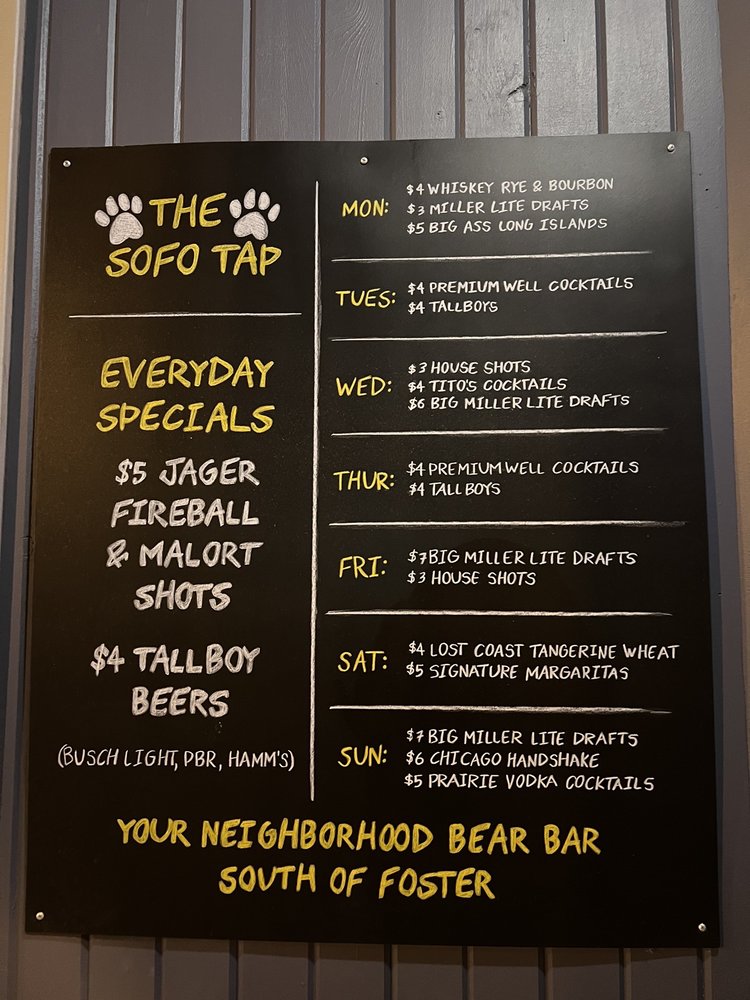 THE
SOFO TAP
EVERYDAY
SPECIALS
$5 JAGER
FIREBALL
& MALORT
SHOTS
$4 TALLBOY
BEERS
(BUSCH LIGHT, PBR, HAMM'S)
MON:
$4 WHISKEY RYE & BOURBON
$3 MILLER LITE DRAFTS
$5 BIG ASS LONG ISLANDS
TUES:
$4 PREMIUM WELL COCKTAILS
$4 TALLBOYS
WED:
$3 HOUSE SHOTS
$4 TITO'S COCKTAILS
$6 BIG MILLER LITE DRAFTS
THUR:
$4 PREMIUM WELL COCKTAILS
$4 TALLBOYS
FRI:
$7 BIG MILLER LITE DRAFTS
$3 HOUSE SHOTS
SAT:
$4 LOST COAST TANGERINE WHEAT
$5 SIGNATURE MARGARITAS
SUN:
$7 BIG MILLER LITE DRAFTS
$6 CHICAGO HANDSHAKE
$5 PRAIRIE VODKA COCKTAILS
YOUR NEIGHBORHOOD BEAR BAR
SOUTH OF FOSTER